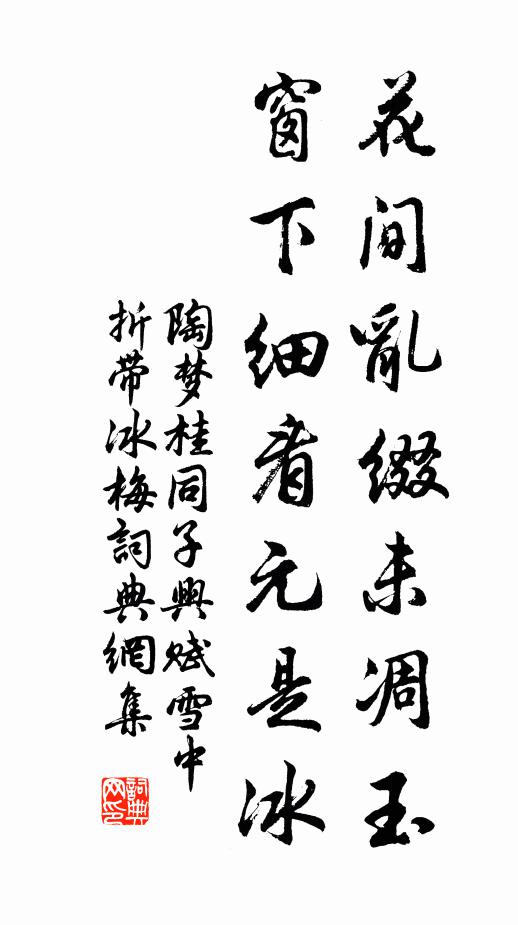 花间亂缀未凋玉
窗下细看元是冰
陶梦桂同子興赋雪中
折带冰梅詞典網集
詞典网印